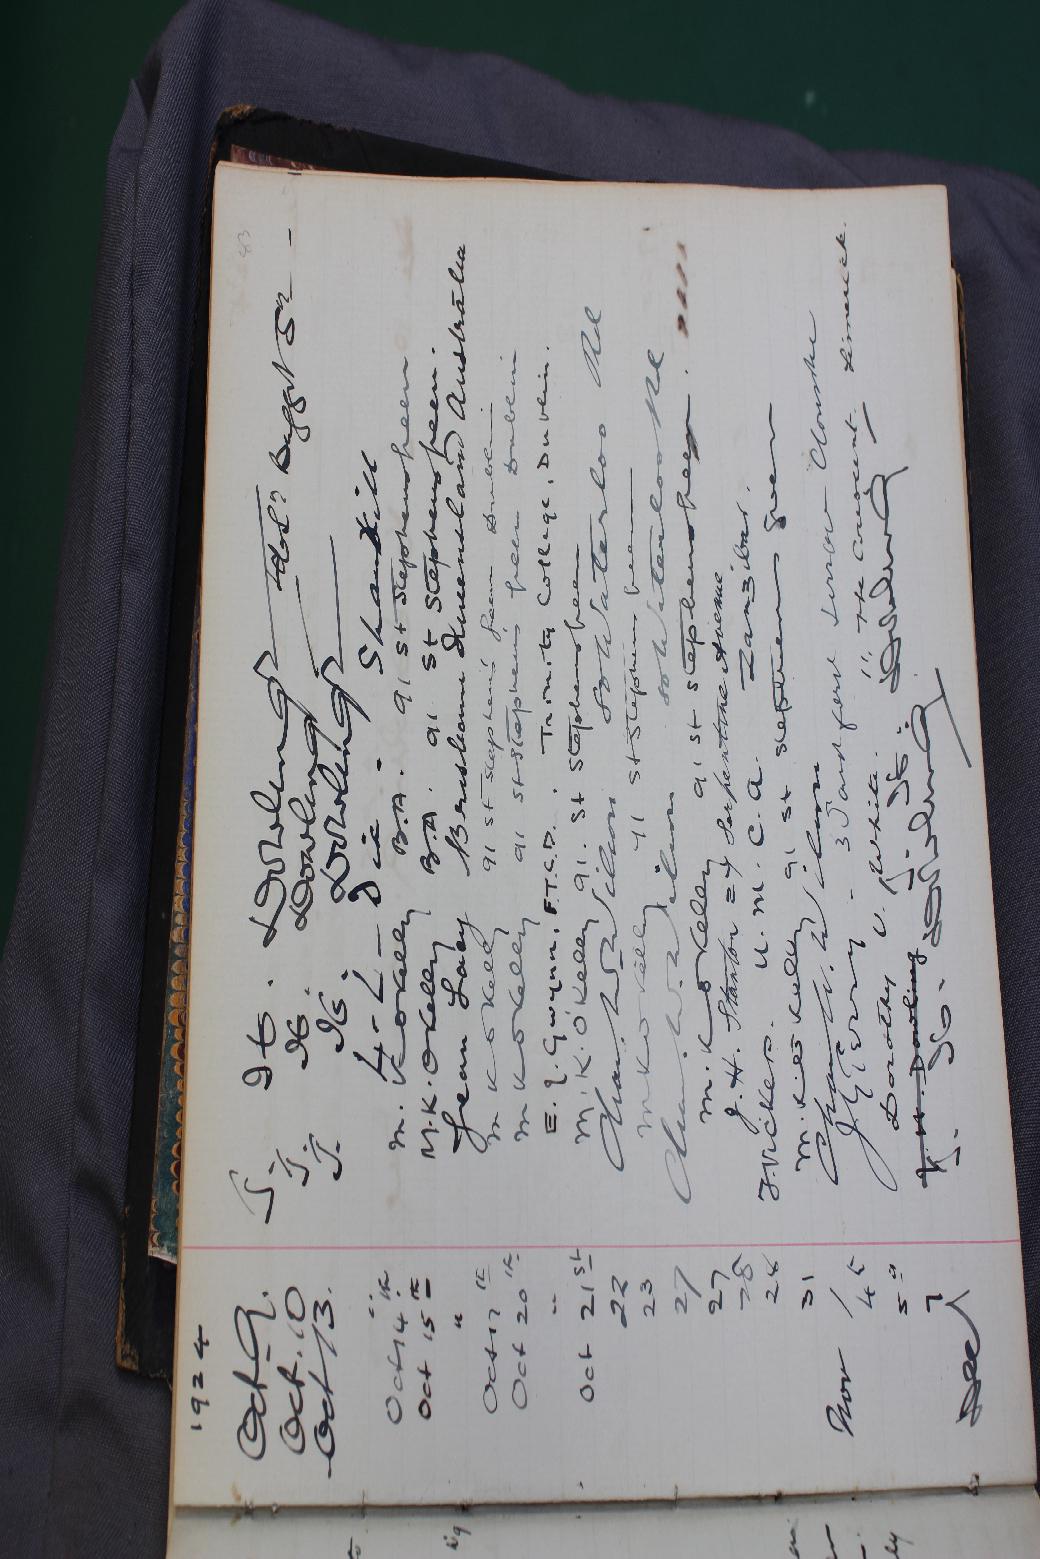 1924
Oct 9. J. H. Dowling
Oct. 10 J. H. Dowling Bagot St
Oct 13. J. H. Dowling
4 - L - Sie - Shankill
Oct 14th M. K. O'Kelly B.A. 91 St Stephens Green
Oct 15th M. K. O'Kelly B.A. 91 St Stephens Green.
" Jean Brisbane Queensland Australia
Oct 17th M K O'Kelly 91 St Stephens Green Dublin
Oct 20th M K O'Kelly 91 St Stephens Green Dublin
" E. J. Gwynn, F.T.C.D. Trinity College, Dublin.
Oct 21st M. K. O'Kelly 91. St Stephens Green
22 Chas. W. Wilson 50 Waterloo Rd
23 M K O'Kelly 91 St Stephens Green
27 Chas. W. Wilson 50 Waterloo Rd
27 M. K O'Kelly 91 St Stephens Green. " " "
28 J. H. Stanton 24 Serpentine Avenue
28 J. Vickers. U. M. C. A. Zanzibar.
31 M. K. O'Kelly 91 St Stephens Green
Nov 1 Chas. W. Wilson
4th - 3 Terrace
5th Dorothy V. White. "The Crescent Limerick.
7 J. H. Dowling J. H. Dowling
Dec J. H. Dowling